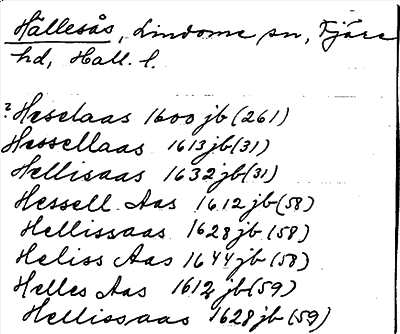 Hällesås, Lindome sn, Fjäre
hd, Hall. l.
? Heselaas 1600 jb (261)
Hessellaas 1613 jb (31)
Hellisaas 1632 jb (31)
Hessell Aas 1612 jb (58)
Hellissaas 1628 jb (58)
Heliss Aas 1644 jb (58)
Helles Aas 1612 jb (59)
Hellissaas 1628 jb (59)